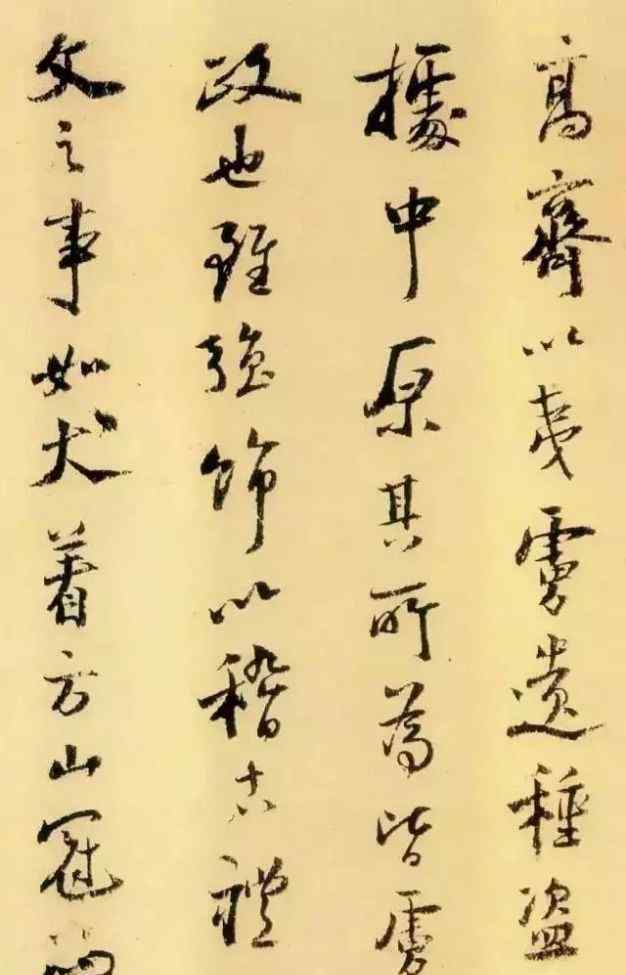 高齊以夷虜遺種盜
據中原其所為皆虜
政也雖強飾以稽古禮
文之事如犬著方山冠